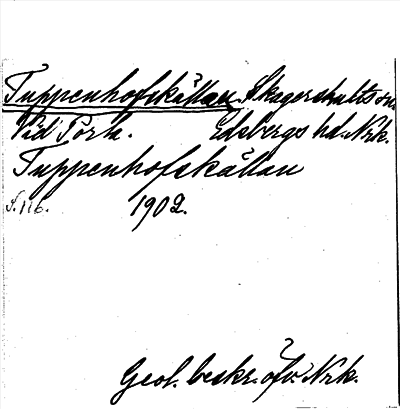 Tuppenhofskällan. Skagershults sn.
Vid Porla. Edsbergs hd. Nrk.
Tuppenhofskällan
S. 116. 1902.
Geol. beskr. öfv. Nrk.